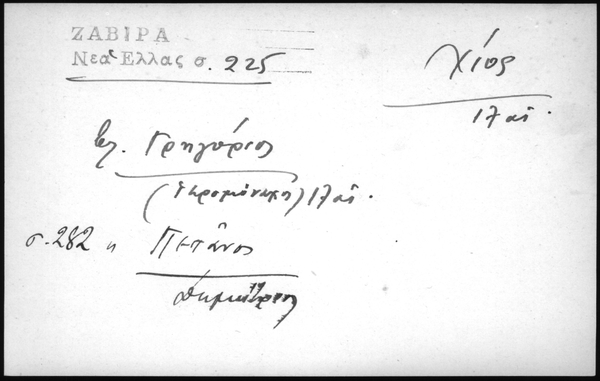 ΖΑΒΙΡΑ
Νεα Ελλας σ. 225
Χίος
17 αἰ.
βλ. Γρηγόριος
(Ἱερομόναχος) 17 αἰ.
σ. 282 Πετᾶνος
Δημήτριος